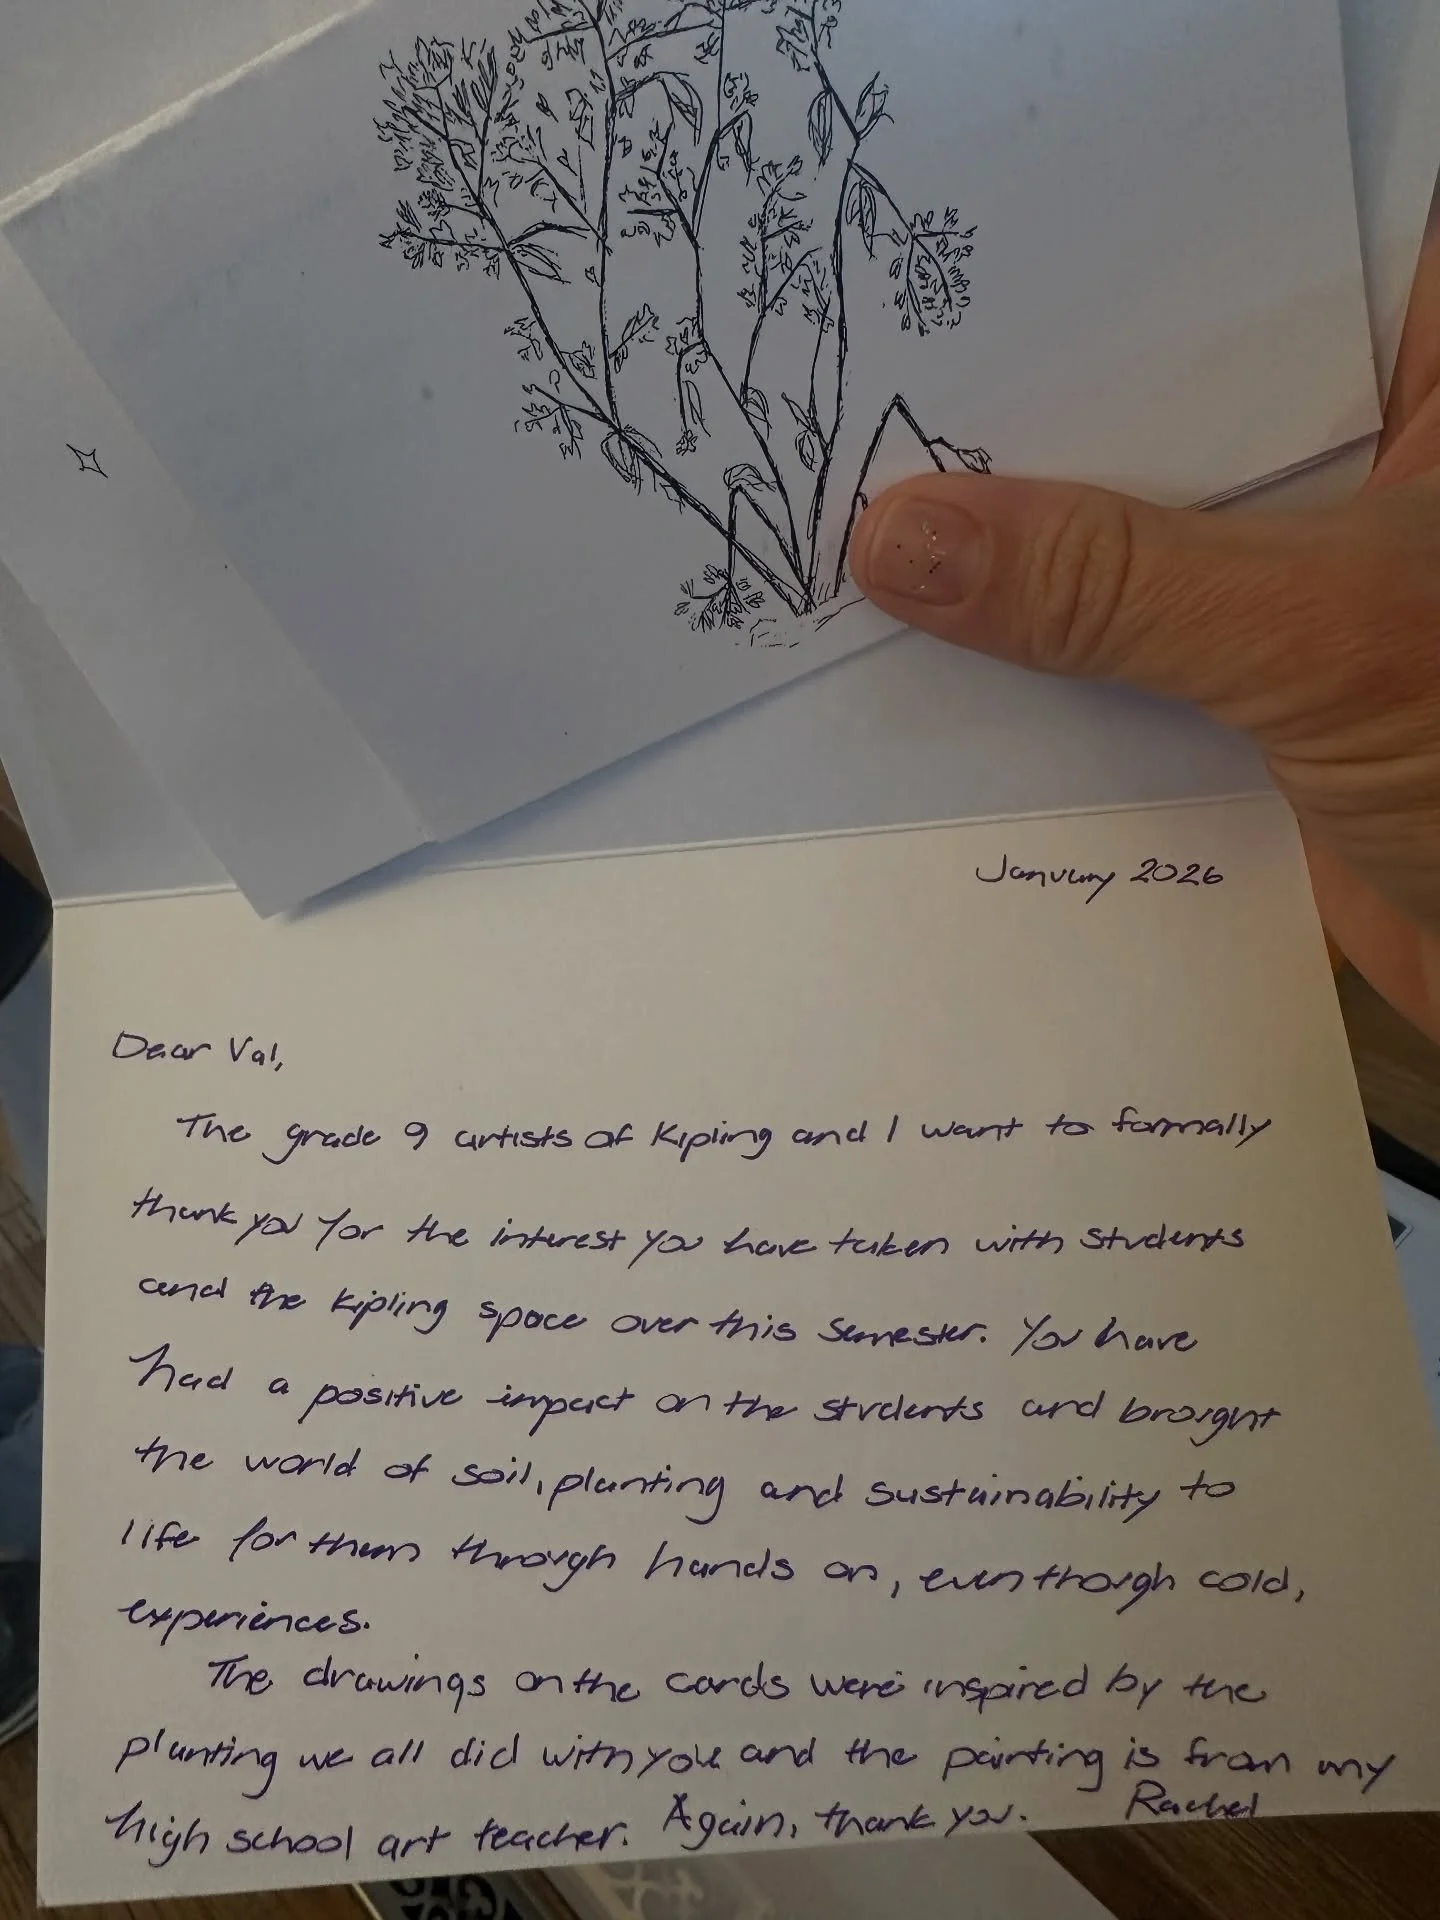 January 2026
Dear Val,
The grade 9 artists of Kipling and I want to formally
thank you for the interest you have taken with students
and the Kipling space over this semester. You have
had a positive impact on the students and brought
the world of soil, planting and sustainability to
life for them through hands on, even though cold,
experiences.
The drawings on the cards were inspired by the
planting we all did with you and the painting is from my
high school art teacher. Again, thank you. Rachel